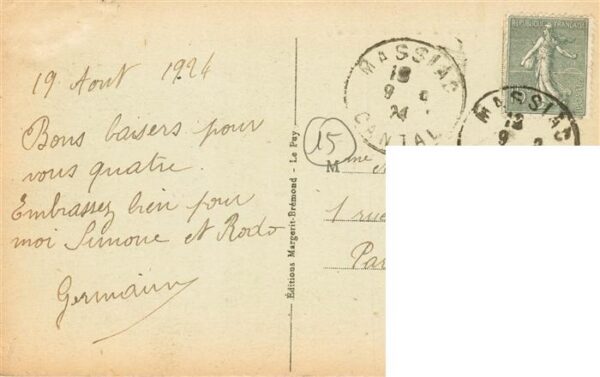 19 Aout 1924
Bons baisers pour
vous quatre.
Embrassez bien pour
moi Simone et Rodo
Germain
Éditions Margerit-Brémond - Le Puy
15
MASSIAC
CANTAL
REPUBLIQUE FRANÇAISE
MASSIAC
Mme
1 rue